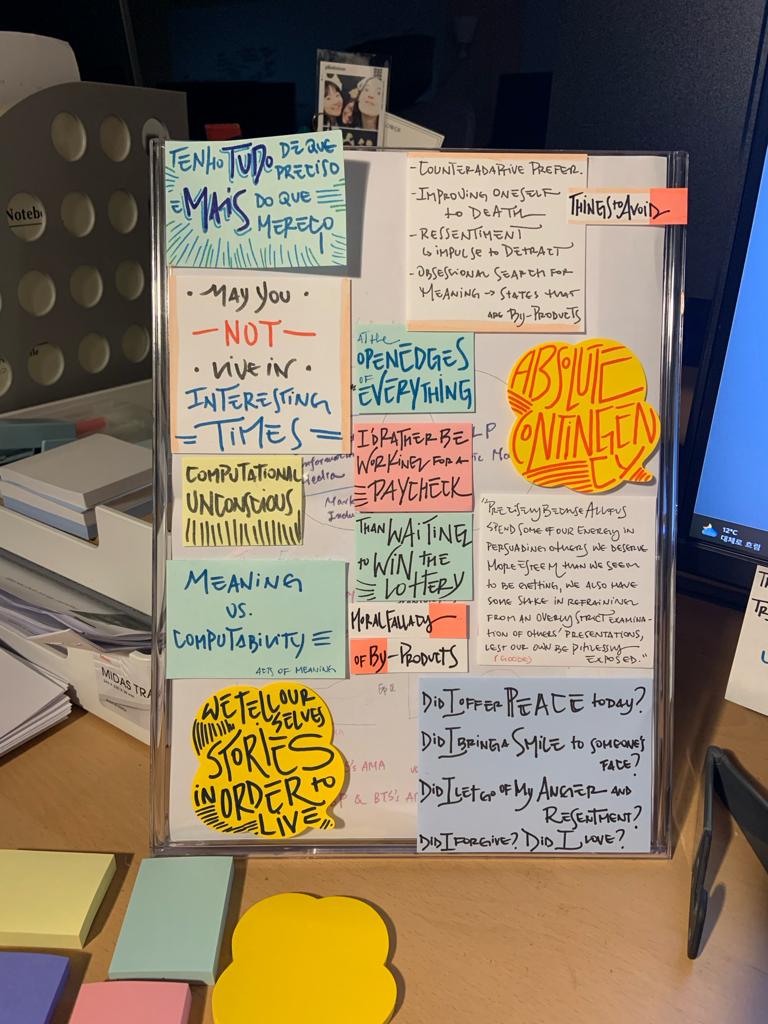 TENHO TUDO DE QUE
PRECISO
E MAIS DO QUE
MEREÇO
- COUNTERADAPTIVE PREFER.
- IMPROVING ONESELF
TO DEATH
- RESSENTIMENT
↳ IMPULSE TO DETRACT
- OBSESSIONAL SEARCH FOR
MEANING → STATES THAT
ARE BY-PRODUCTS
THINGS TO AVOID
· MAY YOU ·
— NOT —
· LIVE IN ·
INTERESTING
= TIMES =
AT THE
OPEN EDGES
OF EVERYTHING
ABSOLUTE
CONTINGEN
CY
COMPUTATIONAL
UNCONSCIOUS
I'D RATHER BE
WORKING FOR A
PAYCHECK
THAN WAITING
TO WIN THE
LOTTERY
"PRECISELY BECAUSE ALL OF US
SPEND SOME OF OUR ENERGY IN
PERSUADING OTHERS WE DESERVE
MORE ESTEEM THAN WE SEEM
TO BE GETTING, WE ALSO HAVE
SOME STAKE IN REFRAINING
FROM AN OVERLY STRICT EXAMINA-
TION OF OTHERS' PRESENTATIONS,
LEST OUR OWN BE PITILESSLY
(GOODE) EXPOSED."
MEANING
VS.
COMPUTABILITY
ACTS OF MEANING
MORAL FALLACY
OF BY-PRODUCTS
WE TELL OUR
SELVES
STORIES
IN ORDER TO
LIVE
DID I OFFER PEACE TODAY?
DID I BRING A SMILE TO SOMEONE'S
FACE?
DID I LET GO OF MY ANGER AND
RESENTMENT?
DID I FORGIVE? DID I LOVE?
Noteb
MIDAS TRA
12°C
대체로 흐림
's AMA
P & BTS's A